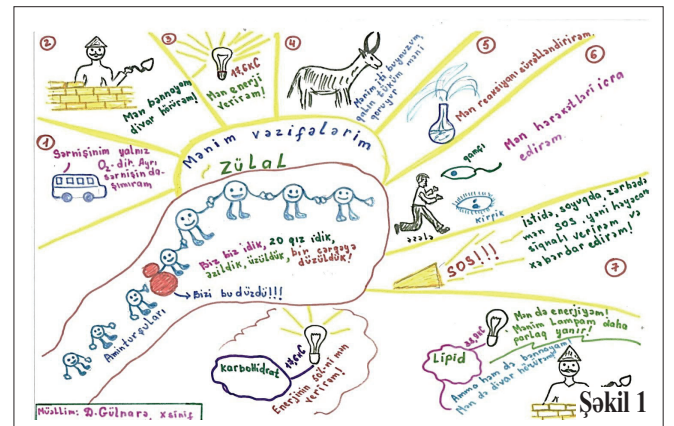 ②
Mən bənnayam
divar hörürəm!
③
17,6 kC
Mən enerji
verirəm!
④
Mənim iti buynuzum,
qalın tüküm məni
qoruyur
⑤
Mən reaksiyanı sürətləndirirəm.
⑥
Mən hərəkətləri icra
edirəm.
qamçı
kirpik
əzələ
①
Sərnişinim yalnız
O₂-dir. Ayrı
sərnişin da-
şımıram
Mənim vəzifələrim
ZÜLAL
Biz biz idik, 20 qız idik,
əzildik, üzüldük, bir cərgəyə
düzüldük!
Bizi bu düzdü!!!
Aminturşuları
SOS!!!
İstidə, soyuqda, zərbədə
mən SOS, yəni həyəcan
siqnalı verirəm və
xəbərdar edirəm!
⑦
Karbohidrat
17,6 kC
Enerjinin 50%-ni mən
verirəm!
Lipid
Mən də enerjiyəm!
Mənim Lampam daha
parlaq yanır!
Amma həm də bənnayam!
Mən də divar hörürəm!
Müəllim: D. Gülnarə, X sinif
Şəkil 1